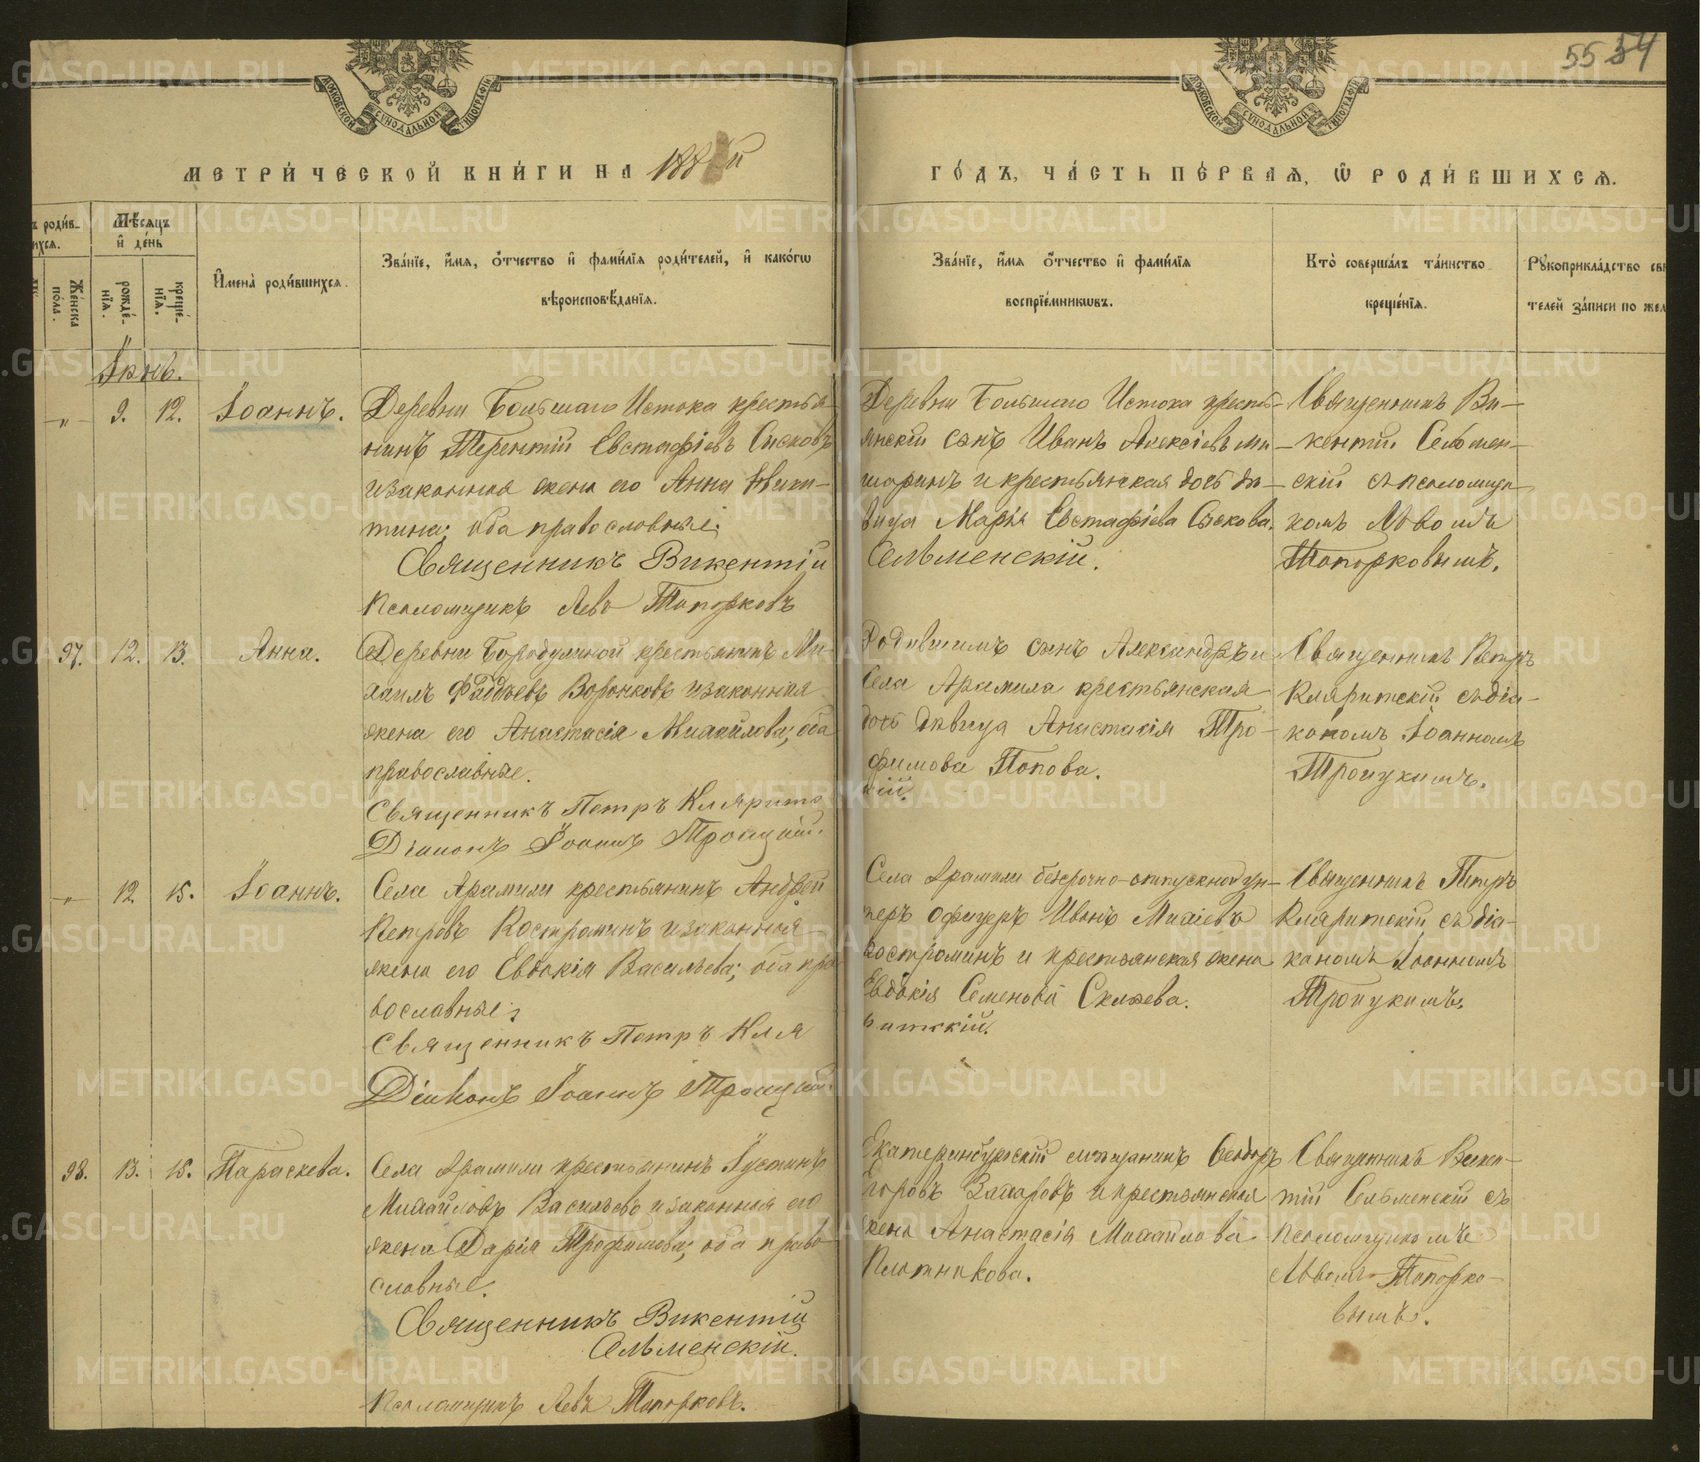 55 54
МЕТРИ́ЧЕСКОЙ КНИ́ГИ НА 188 й
ГО́ДЪ, ЧА́СТЬ ПЕ́РВАѦ, Ѽ РОДИ́ВШИХСѦ.
ъ роди́в-
ихсѧ.
Же́нска
по́ла.
Мѣ́сѧцъ
и҆ де́нь
рожде́-
нїѧ.
креще́-
нїѧ.
И҆мена̀ роди́вшихсѧ.
Зва́нїе, и҆́мѧ, ѻ҆́тчество и҆ фами́лїѧ роди́телей, и҆ како́гѡ
вѣроисповѣ́данїѧ.
Зва́нїе, и҆́мѧ ѻ҆́тчество и҆ фами́лїѧ
воспрїе́мникѡвъ.
Кто̀ соверша́лъ та́инство
креще́нїѧ.
Рꙋкоприкла́дство сви
телей за́писи по жел
Іюнь.
-"- 9. 12. Іоаннъ.
Деревни Большаго Истока крестья-
нинъ Терентій Евстафіевъ Сысковъ
и законная жена его Анна Ники-
тина; оба православные;
Священникъ Викентій
Псаломщикъ Левъ Топорковъ
Деревни Большаго Истока кресть-
янскій сынъ Иванъ Алексіевъ Ми-
шаринъ и крестьянская дочь дѣ-
вица Марія Евстафіева Сыскова.
Сельменскій.
Священникъ Ви-
кентій Сельмен-
скій съ псаломщи
комъ Львомъ
Топорковымъ.
97. 12. 13. Анна.
Деревни Бородулиной крестьянинъ Ми-
хаилъ Фаддѣевъ Воронковъ и законная
жена его Анастасія Михайлова; оба
православные.
Священникъ Петръ Кляритс
Діаконъ Іоаннъ Троицкій.
Родившимъ сынъ Александръ и
Села Арамила крестьянская
дочь дѣвица Анастасія Тро-
фимова Попова.
кій.
Священникъ Петръ
Кляритскій съ діа-
кономъ Іоанномъ
Троицкимъ.
-"- 12. 15. Іоаннъ.
Села Арамили крестьянинъ Андрей
Петровъ Костроминъ и законная
жена его Евдокія Васильева; оба пра
вославные;
Священникъ Петръ Кля
Діаконъ Іоаннъ Троицкій.
Села Арамили безсрочно-отпускной ун-
теръ офицеръ Иванъ Михіевъ
Костроминъ и крестьянская жена
Евдокія Семенова
ритскій.
Священникъ Петръ
Кляритскій съ діа-
кономъ Іоанномъ
Троицкимъ.
98. 13. 15. Параскева.
Села Арамили крестьянинъ Іустинъ
Михайловъ Васильевъ и законная его
жена Дарія Трофимова; оба право-
славные.
Священникъ Викентій
Сельменскій.
Псаломщикъ Левъ Топорковъ.
Екатеринбургскій мѣщанинъ Ѳеодоръ
Егоровъ Захаровъ и крестьянская
жена Анастасія Михайлова
Плотникова.
Священникъ Викен-
тій Сельменскій съ
псаломщикомъ
Львомъ Топорко-
вымъ.